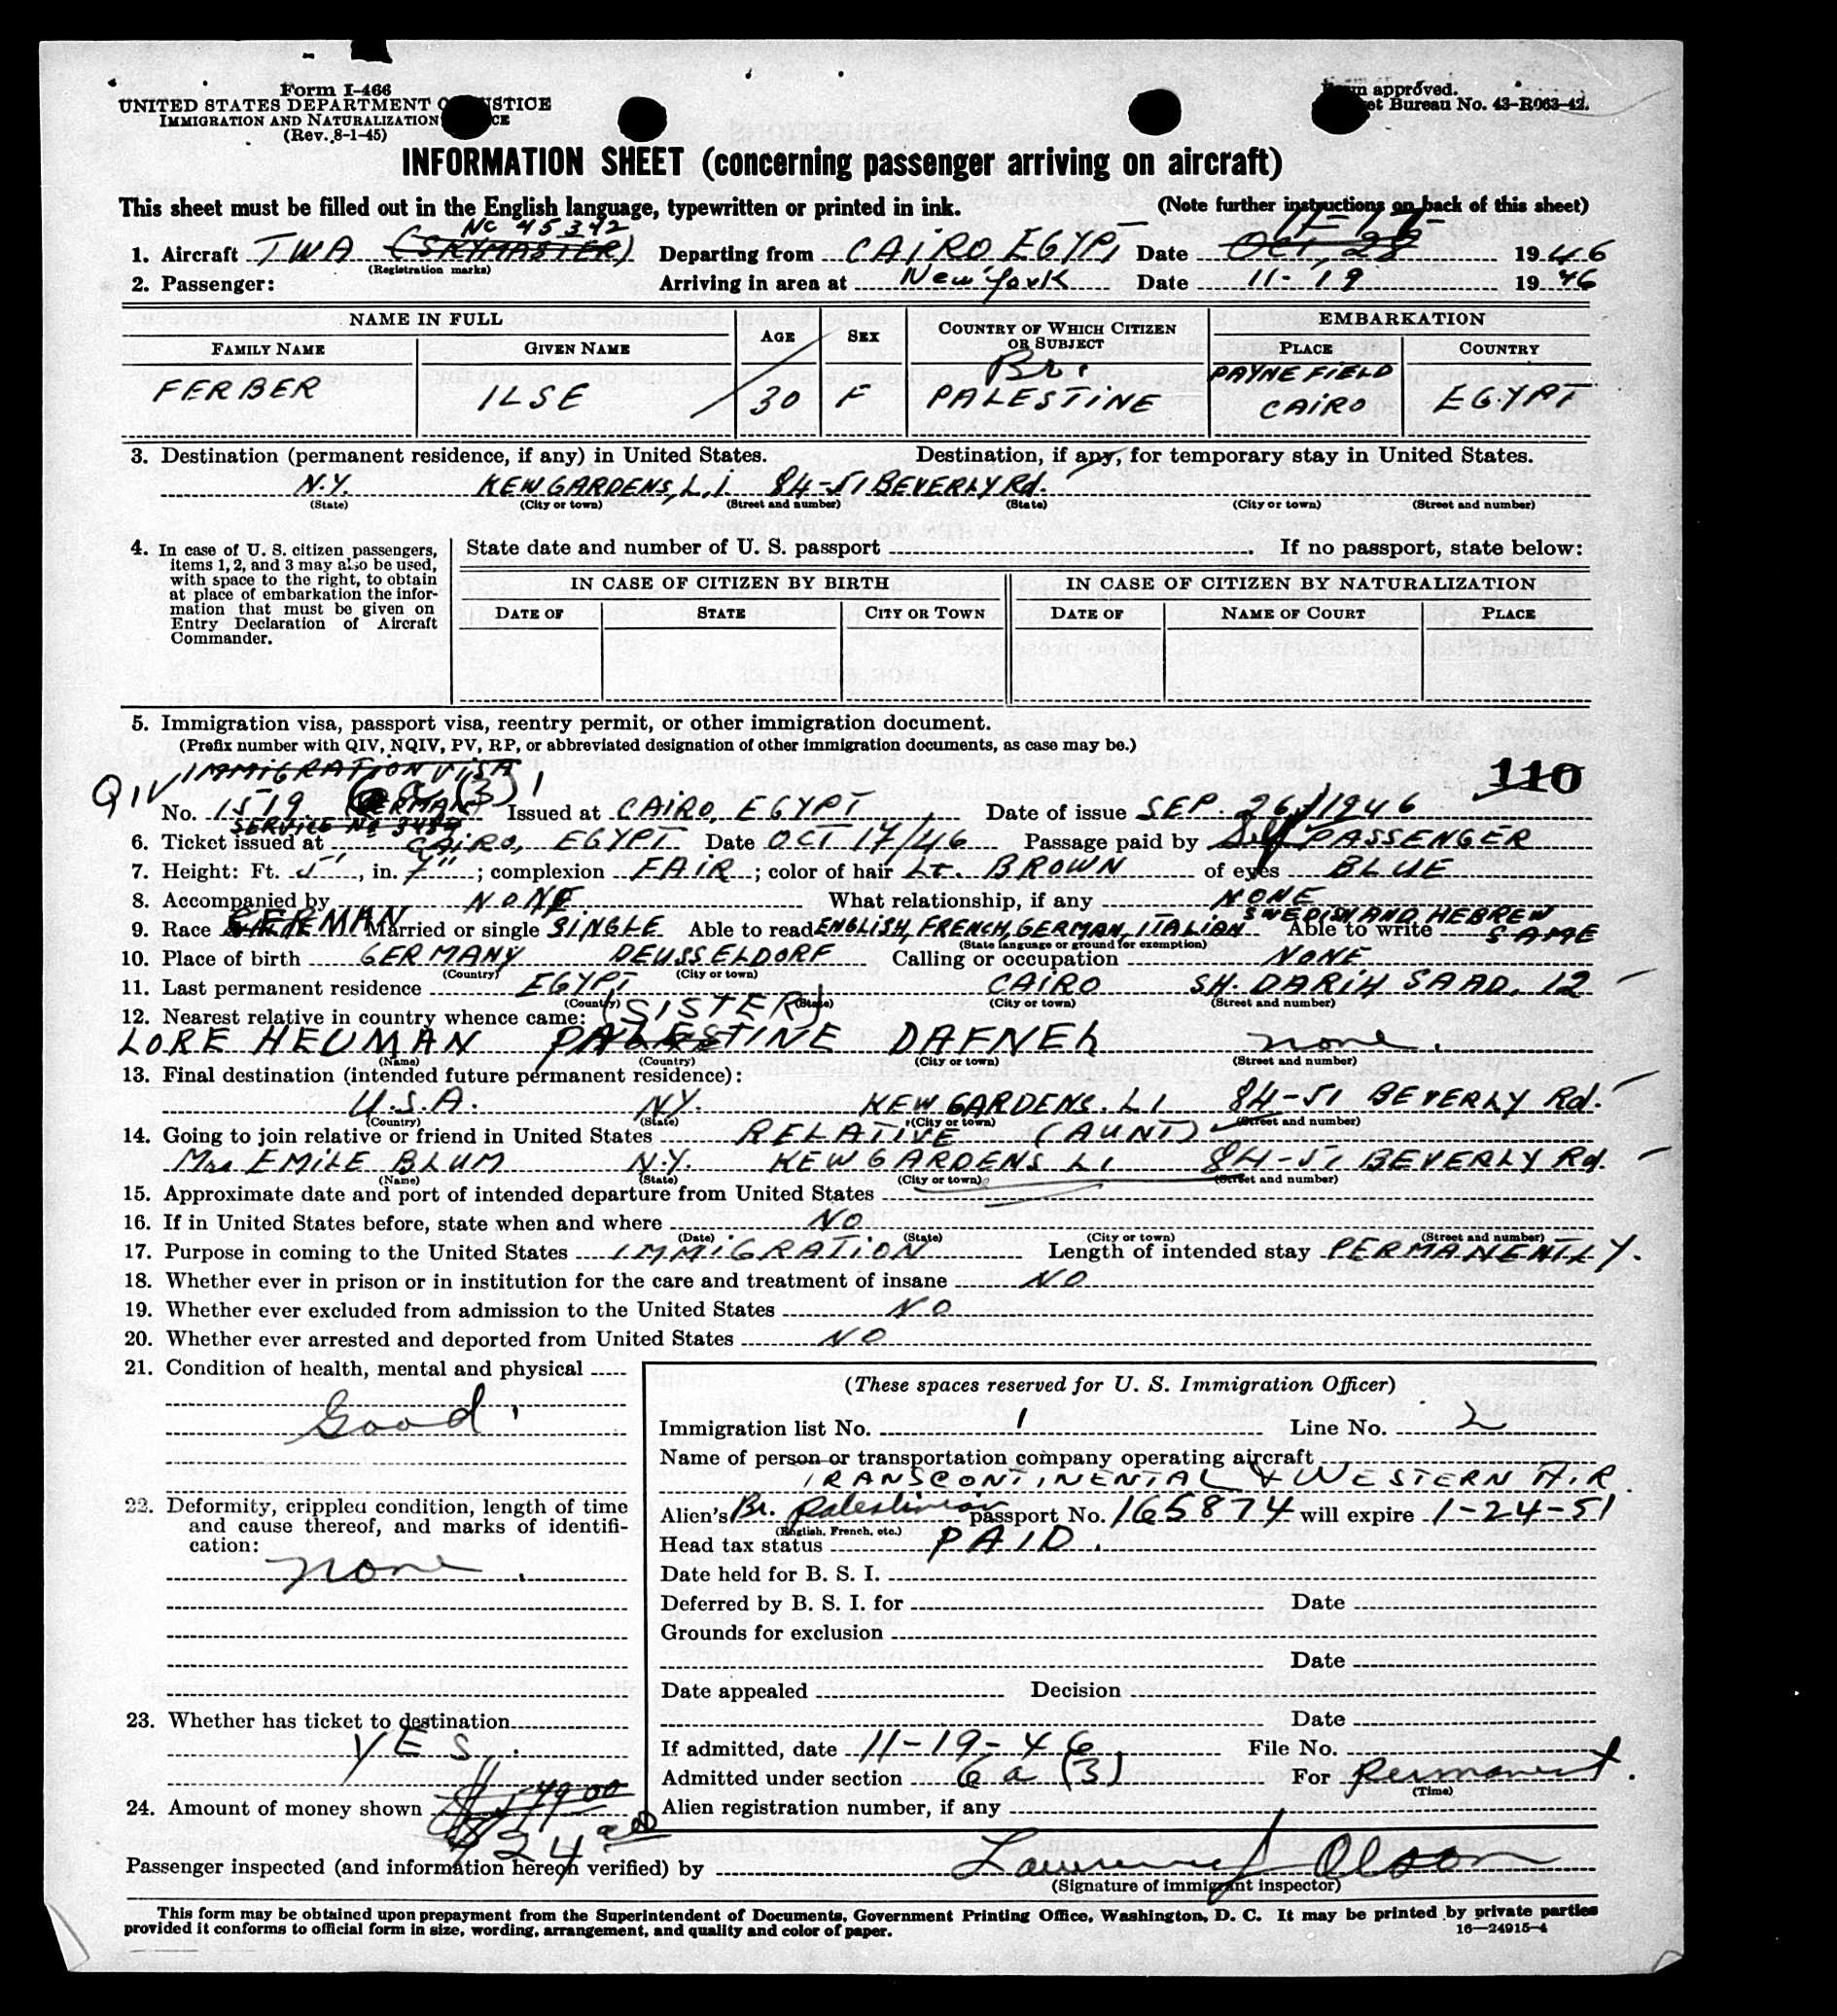 Form I-466
UNITED STATES DEPARTMENT OF JUSTICE
IMMIGRATION AND NATURALIZATION SERVICE
(Rev. 8-1-45)
Form approved.
Budget Bureau No. 43-R063-42.
INFORMATION SHEET (concerning passenger arriving on aircraft)
This sheet must be filled out in the English language, typewritten or printed in ink. (Note further instructions on back of this sheet)
NC 45342 11-17
1. Aircraft TWA (SKYMASTER) Departing from CAIRO EGYPT Date OCT, 28 1946
(Registration marks)
2. Passenger: Arriving in area at New York Date 11-19 1946
NAME IN FULL AGE SEX COUNTRY OF WHICH CITIZEN OR SUBJECT EMBARKATION
FAMILY NAME GIVEN NAME PLACE COUNTRY
Br. PAYNE FIELD
FERBER ILSE 30 F PALESTINE CAIRO EGYPT
3. Destination (permanent residence, if any) in United States. Destination, if any, for temporary stay in United States.
N.Y. KEW GARDENS, L.I 84-51 BEVERLY Rd.
(State) (City or town) (Street and number) (State) (City or town) (Street and number)
4. In case of U. S. citizen passengers, items 1, 2, and 3 may also be used, with space to the right, to obtain at place of embarkation the information that must be given on Entry Declaration of Aircraft Commander.
State date and number of U. S. passport . If no passport, state below:
IN CASE OF CITIZEN BY BIRTH IN CASE OF CITIZEN BY NATURALIZATION
DATE OF STATE CITY OR TOWN DATE OF NAME OF COURT PLACE
5. Immigration visa, passport visa, reentry permit, or other immigration document.
(Prefix number with QIV, NQIV, PV, RP, or abbreviated designation of other immigration documents, as case may be.)
IMMIGRATION VISA 110
QIV 6a (3)
No. 1519 (GERMAN) Issued at CAIRO, EGYPT Date of issue SEP. 26/1946
SERVICE No 3489
6. Ticket issued at CAIRO, EGYPT Date OCT 17/46 Passage paid by Self PASSENGER
7. Height: Ft. 5', in. 7"; complexion FAIR; color of hair Lt. BROWN of eyes BLUE
8. Accompanied by NONE What relationship, if any NONE
SWEDISH AND HEBREW
9. Race GERMAN Married or single SINGLE Able to read ENGLISH, FRENCH, GERMAN, ITALIAN Able to write SAME
(State language or ground for exemption)
10. Place of birth GERMANY DEUSSELDORF Calling or occupation NONE
(Country) (City or town)
11. Last permanent residence EGYPT CAIRO SH. DARIH SAAD, 12
(Country) (State) (City or town) (Street and number)
12. Nearest relative in country whence came: (SISTER)
LORE HEUMAN PALESTINE DAFNEH none.
(Name) (Country) (City or town) (Street and number)
13. Final destination (intended future permanent residence):
U.S.A. NY. KEW GARDENS. L I 84-51 BEVERLY Rd.
(Country) (State) (City or town) (Street and number)
14. Going to join relative or friend in United States RELATIVE (AUNT)
Mrs EMILE BLUM N.Y. KEW GARDENS L I 84-51 BEVERLY Rd.
(Name) (State) (City or town) (Street and number)
15. Approximate date and port of intended departure from United States
16. If in United States before, state when and where NO
(Date) (State) (City or town) (Street and number)
17. Purpose in coming to the United States IMMIGRATION Length of intended stay PERMANENTLY.
18. Whether ever in prison or in institution for the care and treatment of insane NO
19. Whether ever excluded from admission to the United States NO
20. Whether ever arrested and deported from United States NO
21. Condition of health, mental and physical
Good.
22. Deformity, crippled condition, length of time and cause thereof, and marks of identification:
none.
23. Whether has ticket to destination
YES.
24. Amount of money shown
$24.00
(These spaces reserved for U. S. Immigration Officer)
Immigration list No. 1 Line No. 2
Name of person or transportation company operating aircraft
TRANSCONTINENTAL & WESTERN AIR.
Alien's Br. Palestinian passport No. 165874 will expire 1-24-51
(English, French, etc.)
Head tax status PAID.
Date held for B. S. I.
Deferred by B. S. I. for Date
Grounds for exclusion
Date
Date appealed Decision
Date
If admitted, date 11-19-46 File No.
Admitted under section 6a (3) For Permanent.
(Time)
Alien registration number, if any
Passenger inspected (and information hereon verified) by Lawrence J Olson
(Signature of immigrant inspector)
This form may be obtained upon prepayment from the Superintendent of Documents, Government Printing Office, Washington, D. C. It may be printed by private parties
provided it conforms to official form in size, wording, arrangement, and quality and color of paper. 16—24915-4